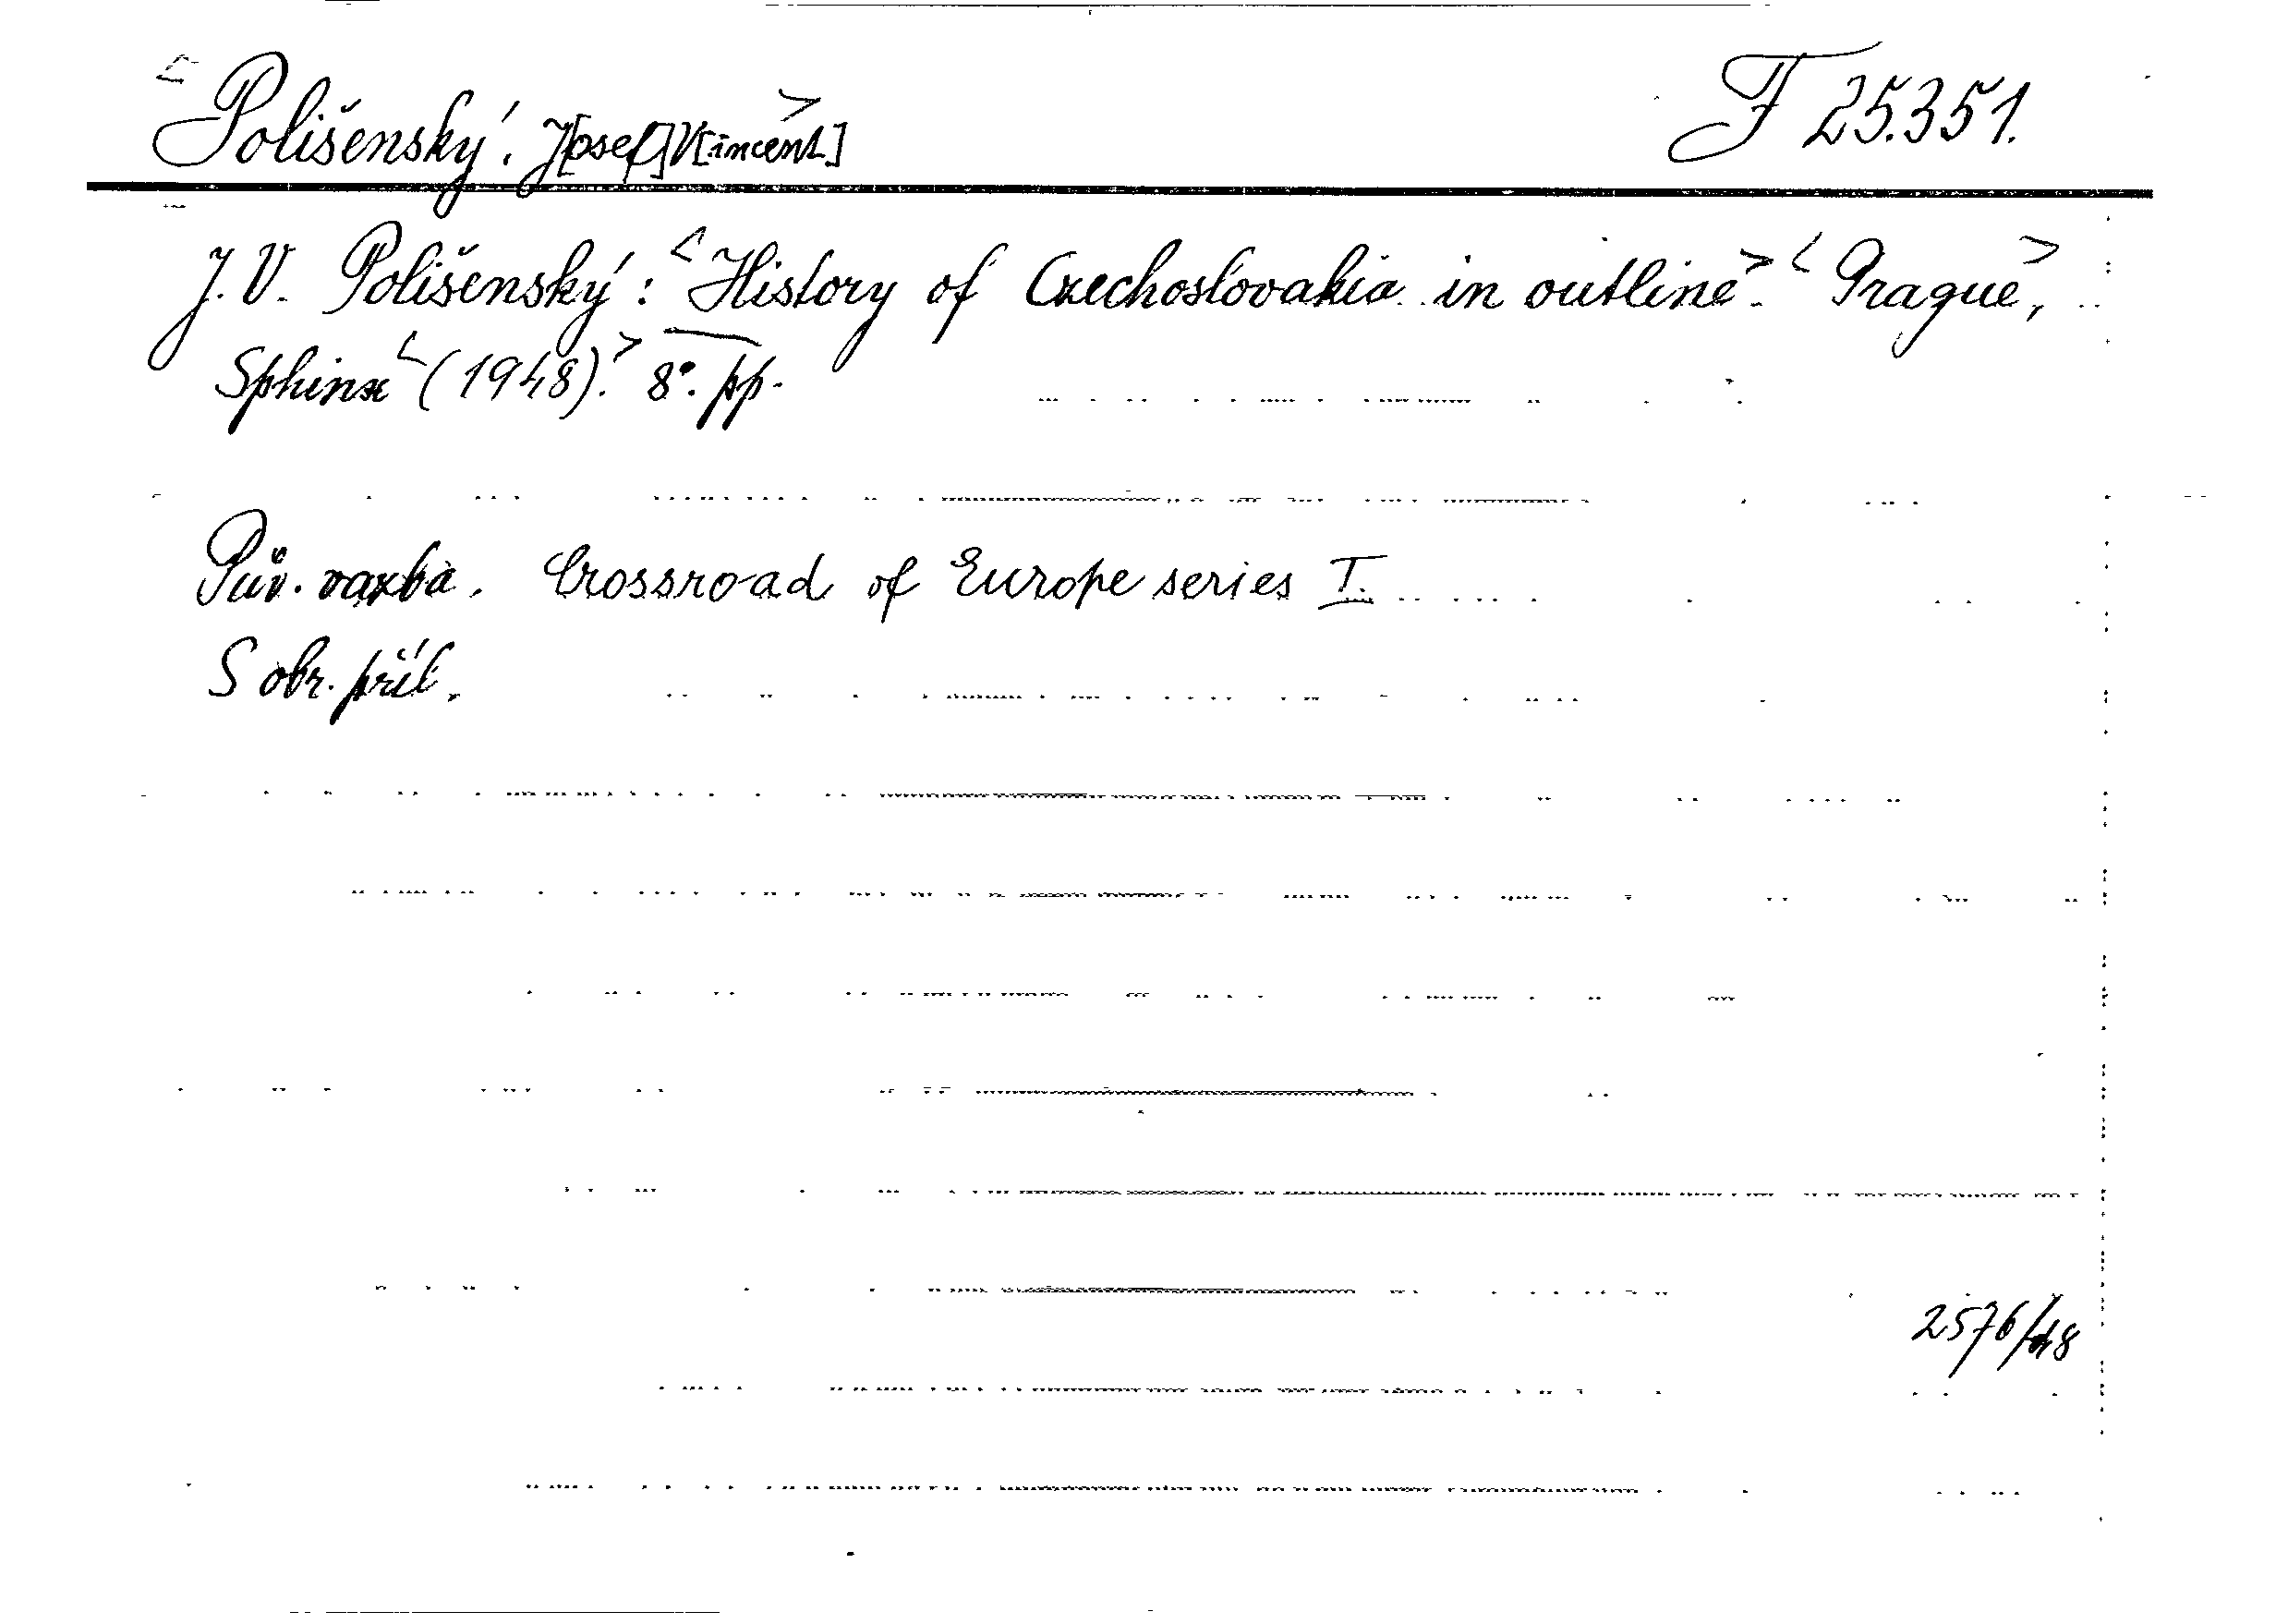 <Polišenský. J[osef] V[incent]> F 25.351.
J. V. Polišenský: <History of Czechoslovakia in outline>. <Prague,>
Sphinx <(1948).> 8°. pp.
Pův. vazba. Crossroad of Europe series I.
S obr. příl.
2576/48